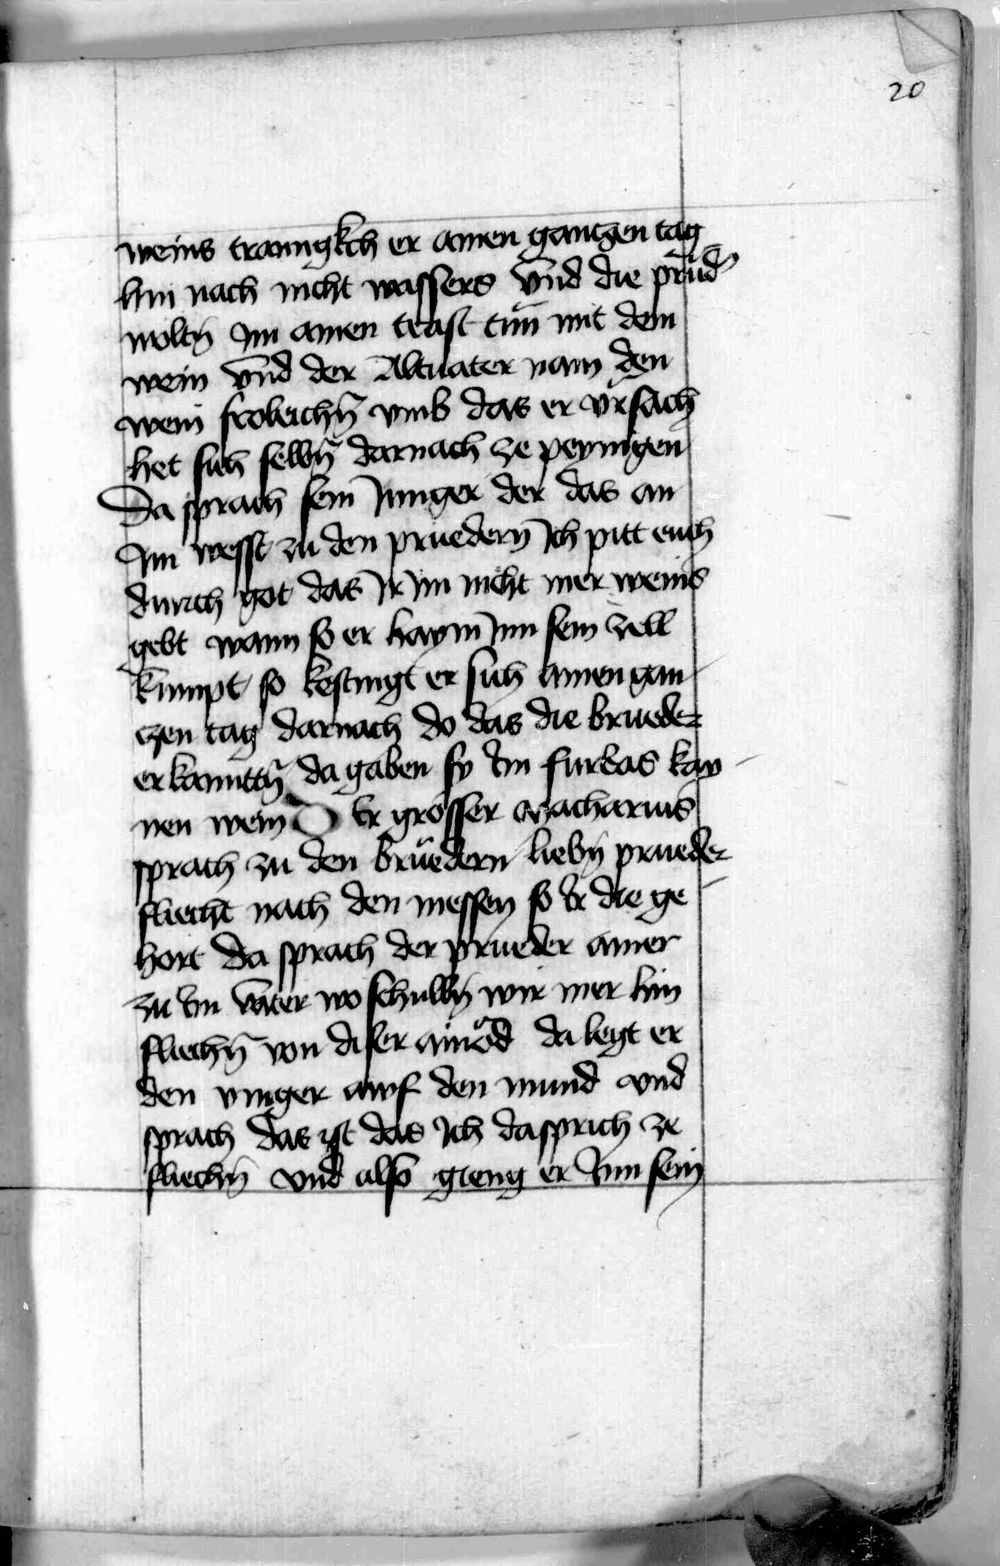 20
weins tranngkch er ainen gantzen tag
hin nach nicht wassers vnd die prüd̄
woltn̄ Im ainen trost tün mit dem
wein vnd der Altuater nam den
wein frolichn̄ vmb das er vrsach
het sich selbn̄ darnach ze peynigen
Da sprach sein Iunger der das an
Im wesst zu den pruedern̄ Ich pitt euch
durch got das Ir Im nicht mer weins
gebt wann so er haym Inn sein zell
kumpt so kestingt er sich ainen gan
czen tag darnach do das die brueder
erkanntn̄ da gaben sy Im furbas kay
nen wein Der grosser Macharius
sprach zu den brüedern liebn̄ prueder
fliecht nach den messen so Ir die ge
hort da sprach der prueder ainer
zu Im vater wo schulln̄ wir mer hin
fliechn̄ von diser ainöd da legt er
den vinger awf den mund vnd
sprach das ist das Ich da sprich ze
fliechn̄ vnd also gieng er Inn sein